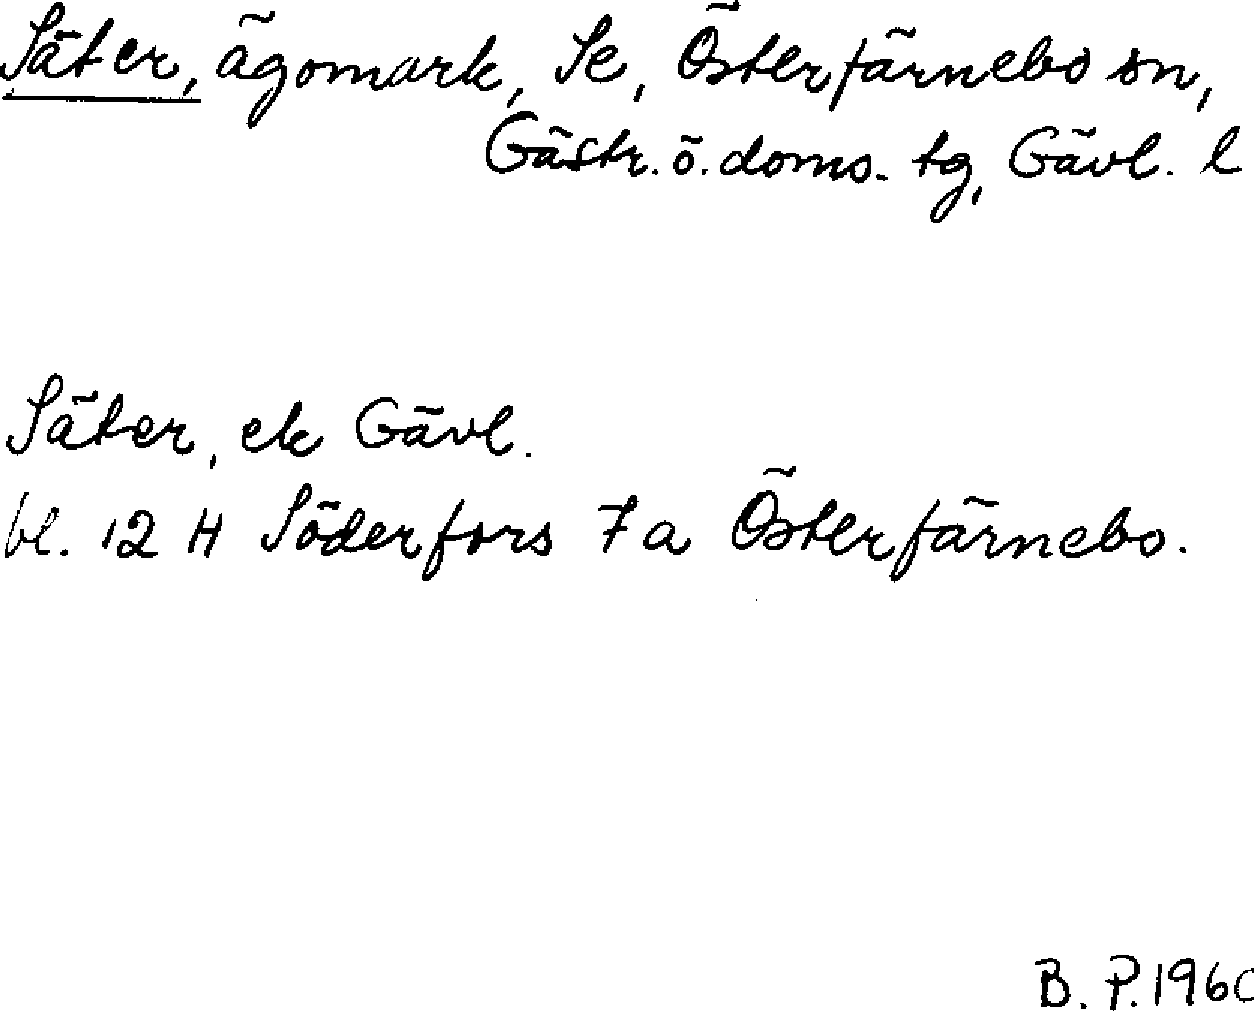 Säter, ägomark, Se, Österfärnebo sn,
Gästr. ö. doms. tg, Gävl. l
Säter, ek Gävl.
bl. 12 H Söderfors 7 a Österfärnebo.
B. P. 1960